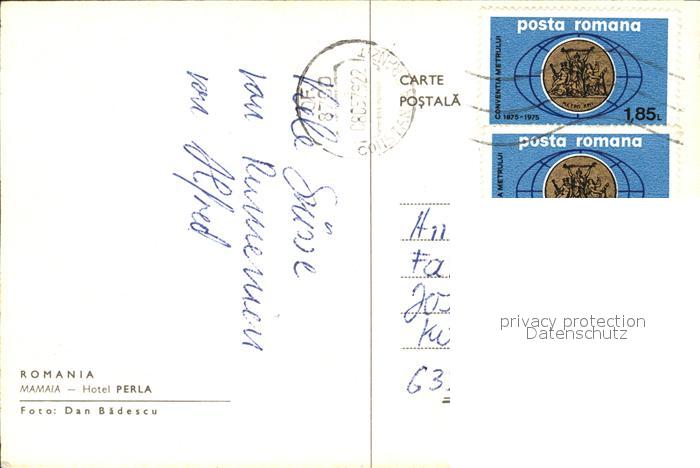 Viele Grüsse
von Rumenien
von Alfred
ROMANIA
MAMAIA — Hotel PERLA
Foto: Dan Bădescu
CARTE
POȘTALĂ
posta romana
CONVENTIA METRULUI
1875-1975
1,85L
posta romana
A METRULUI
Fa
63
privacy protection
Datenschutz